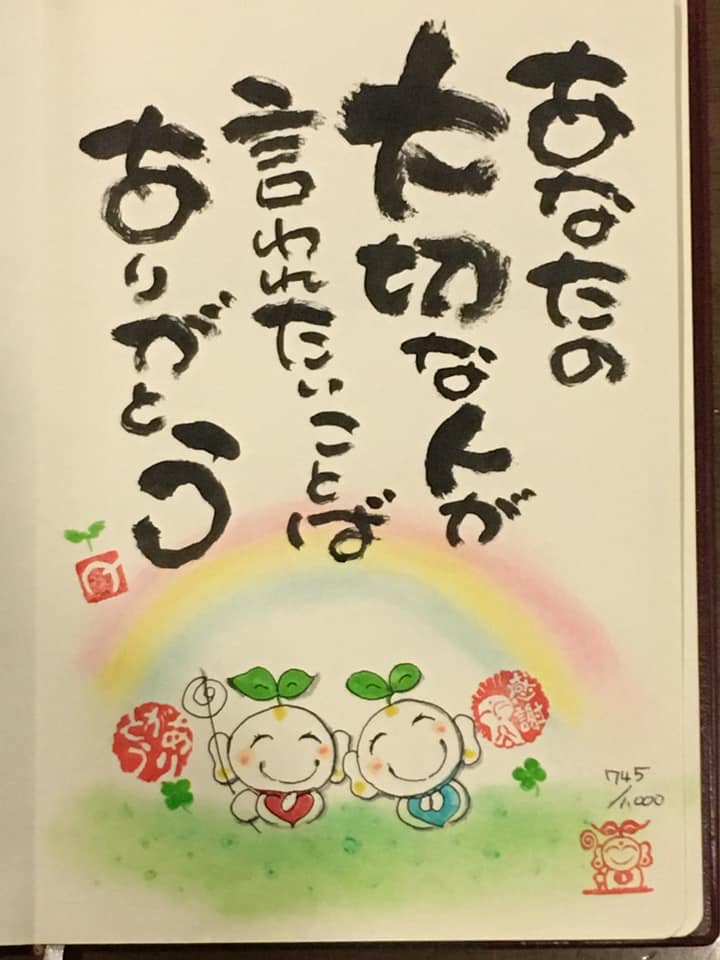 あなたの
大切な人が
言われたいことば
ありがとう
ありがとう
感謝
745/1,000